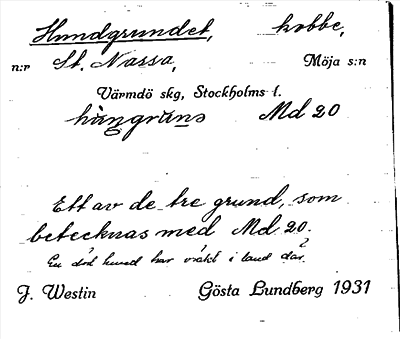 Hundgrundet, kobbe,
n:r St. Nassa, Möja s:n
Värmdö skg, Stockholms l.
hàngrúns Md 20
Ett av de tre grund, som
betecknas med Md 20.
En död hund har vräkt i land där.
J. Westin Gösta Lundberg 1931